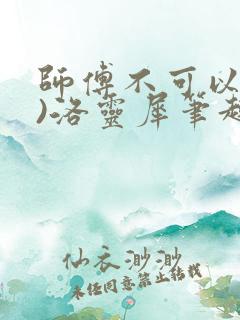 師傅不可以
)洛靈犀筆趣
仙衣渺渺
未经同意禁止转载